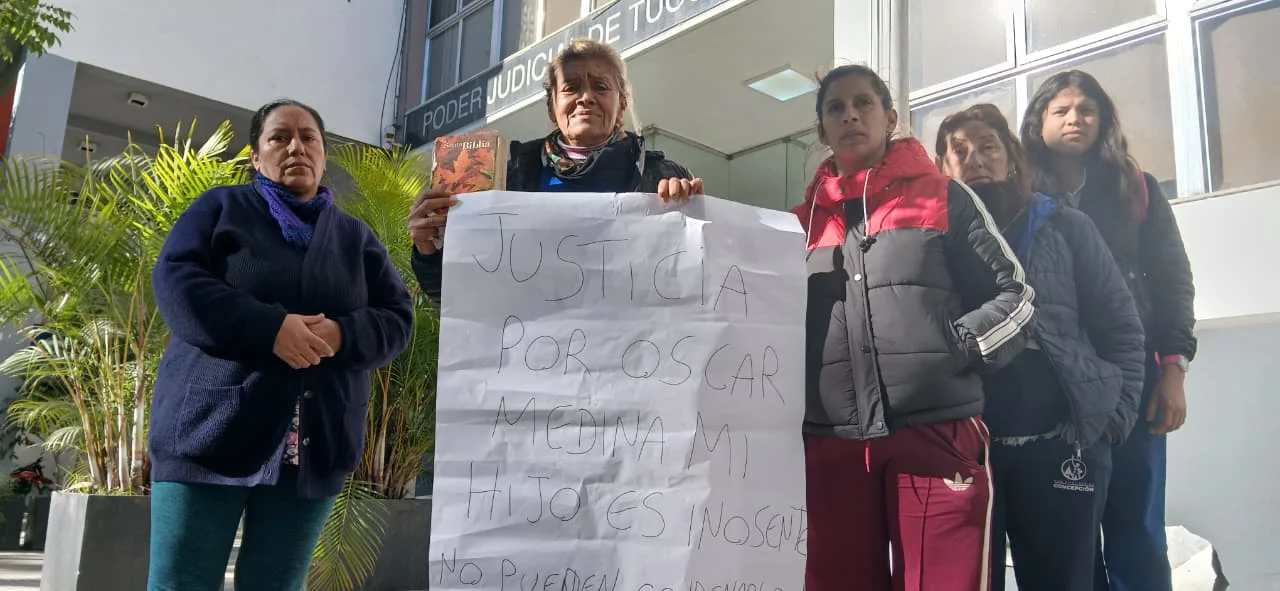 PODER JUDICIAL DE TUC
Santa Biblia
JUSTICIA
POR OSCAR
MEDINA MI
HIJO ES INOSENTE
NO PUEDEN
CONCEPCIÓN